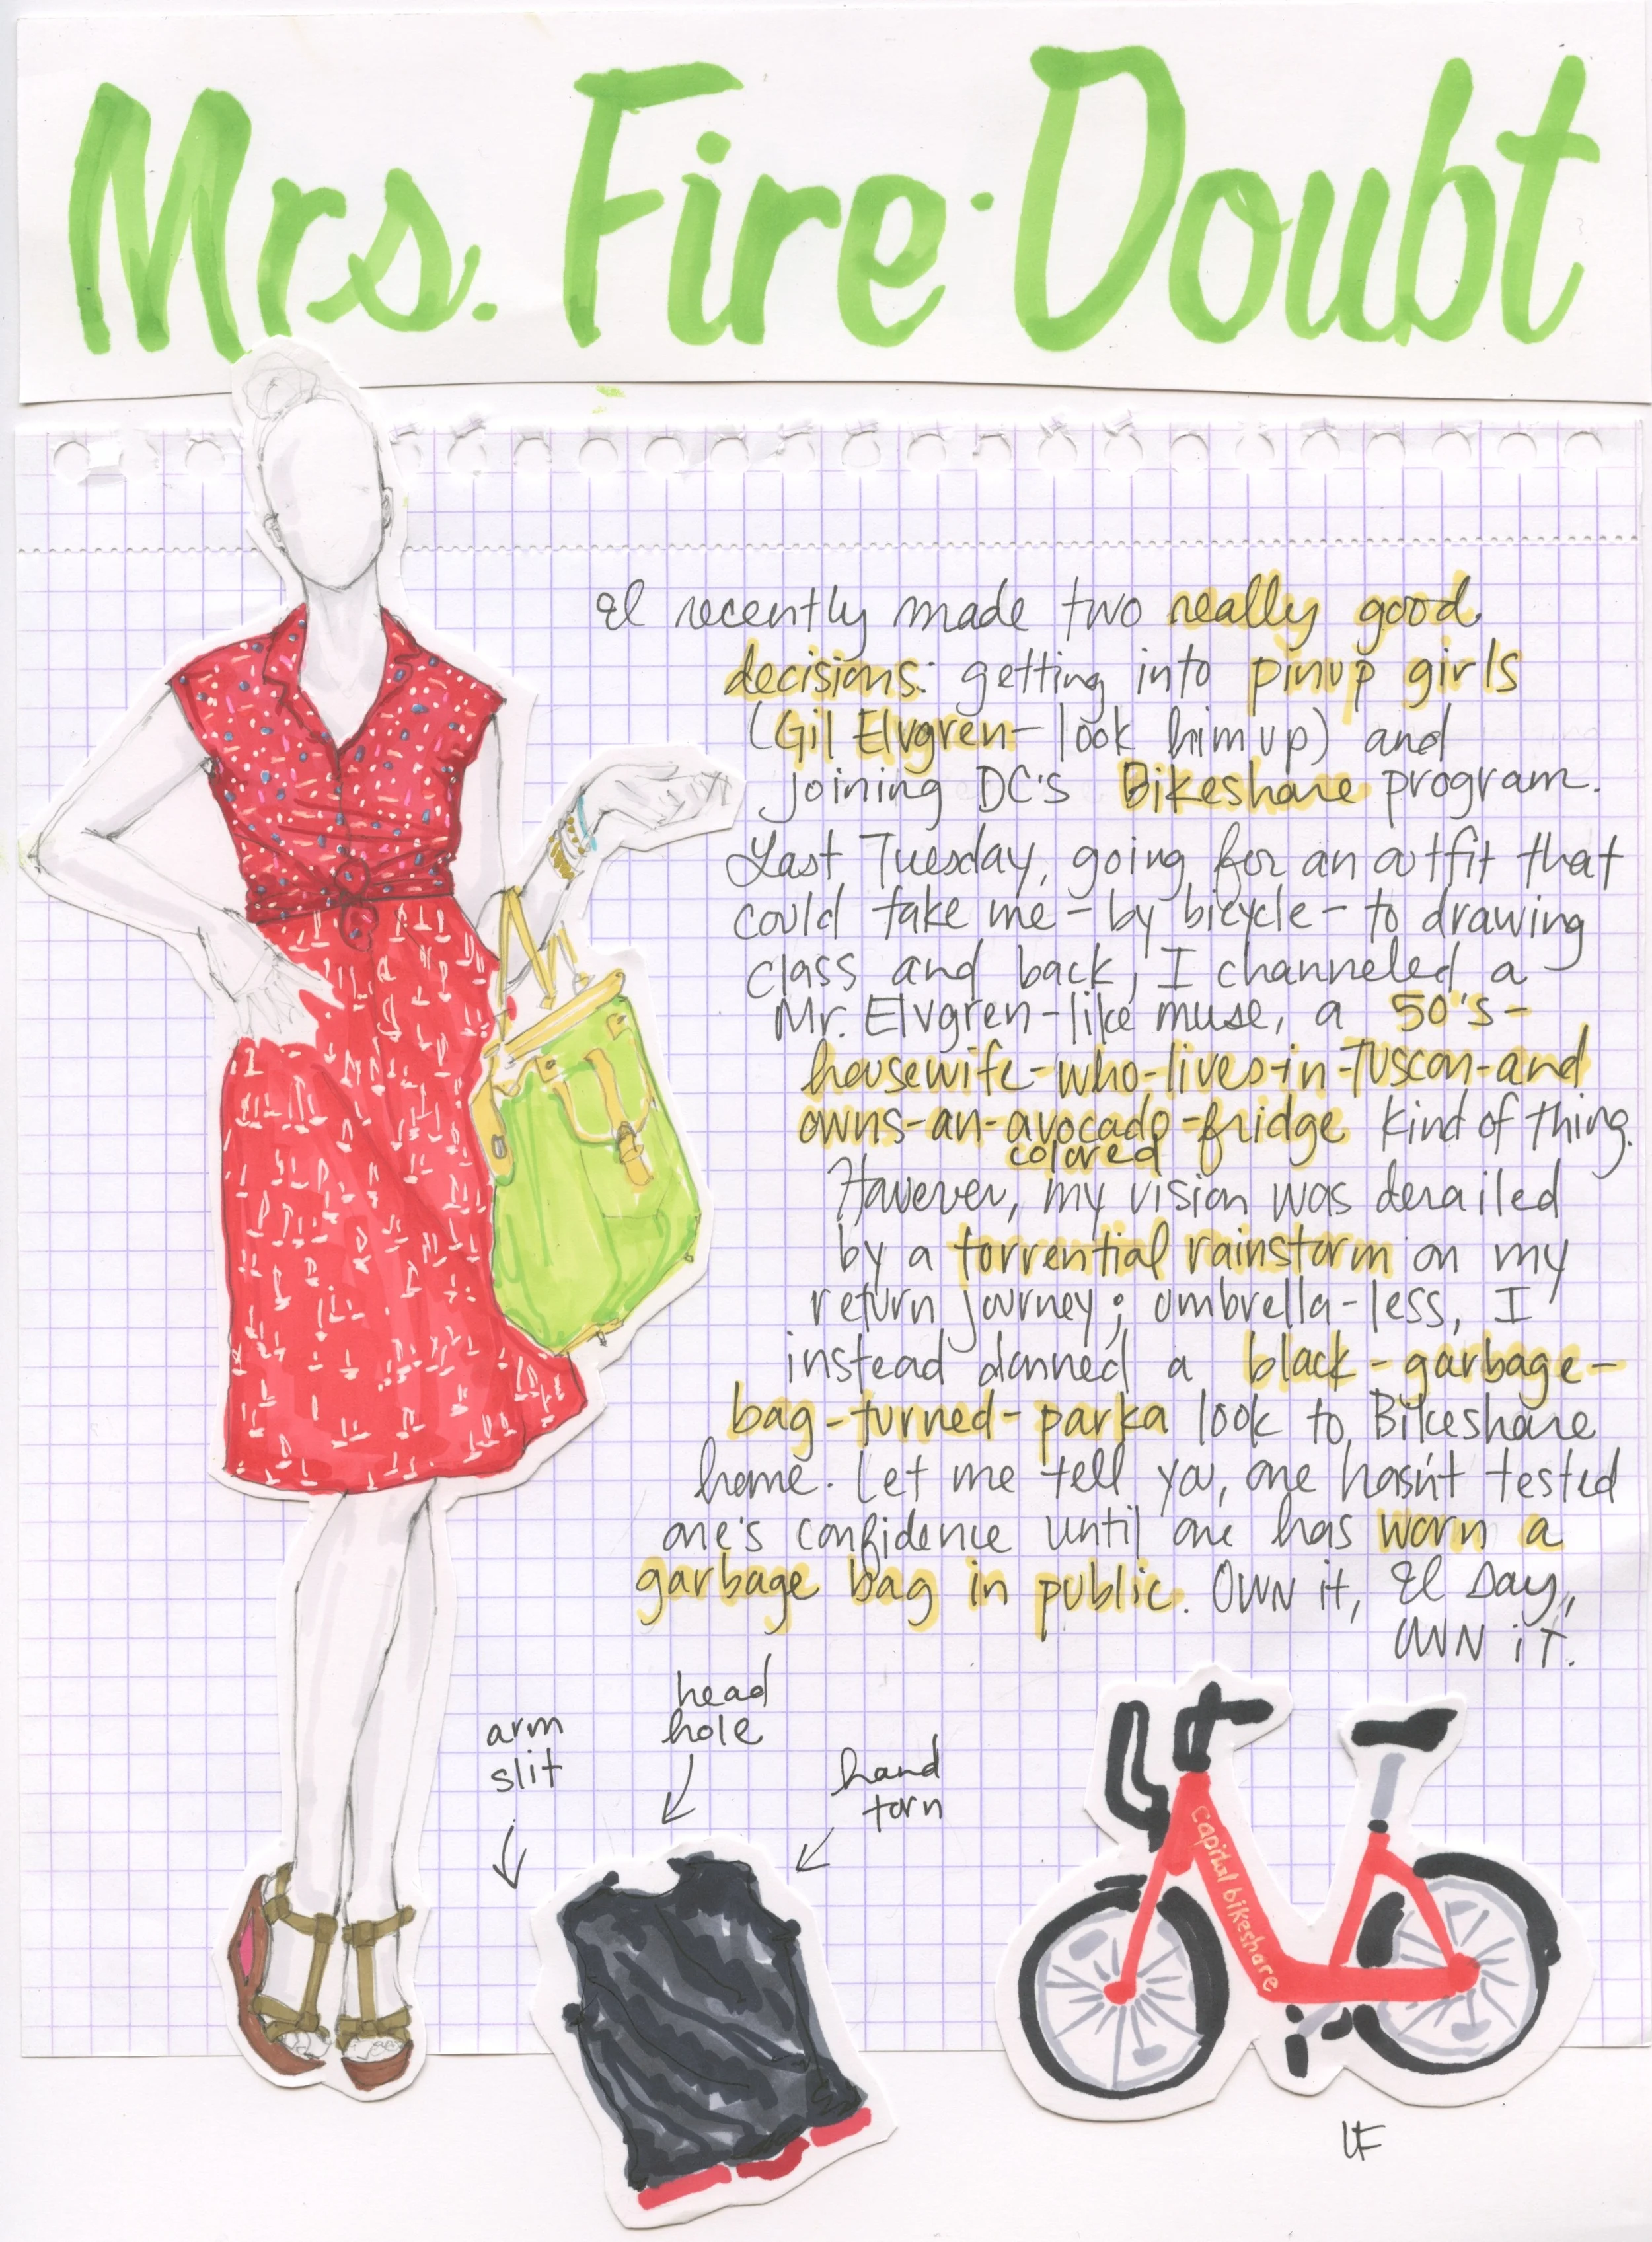 Mrs. Fire-Doubt
I recently made two really good
decisions: getting into pinup girls
(Gil Elvgren- look him up) and
joining DC's Bikeshare program.
Last Tuesday, going for an outfit that
could take me - by bicycle - to drawing
class and back, I channeled a
Mr. Elvgren-like muse, a 50's-
housewife-who-lives-in-Tuscon-and
owns-an-avocado-fridge kind of thing.
colored
However, my vision was derailed
by a torrential rainstorm on my
return journey; umbrella-less, I
instead donned a black-garbage-
bag-turned-parka look to Bikeshare
home. Let me tell you, one hasn't tested
one's confidence until one has worn a
garbage bag in public. OWN it, I say,
OWN iT.
head
hole
arm
slit
hand
torn
Capital bikeshare
LF